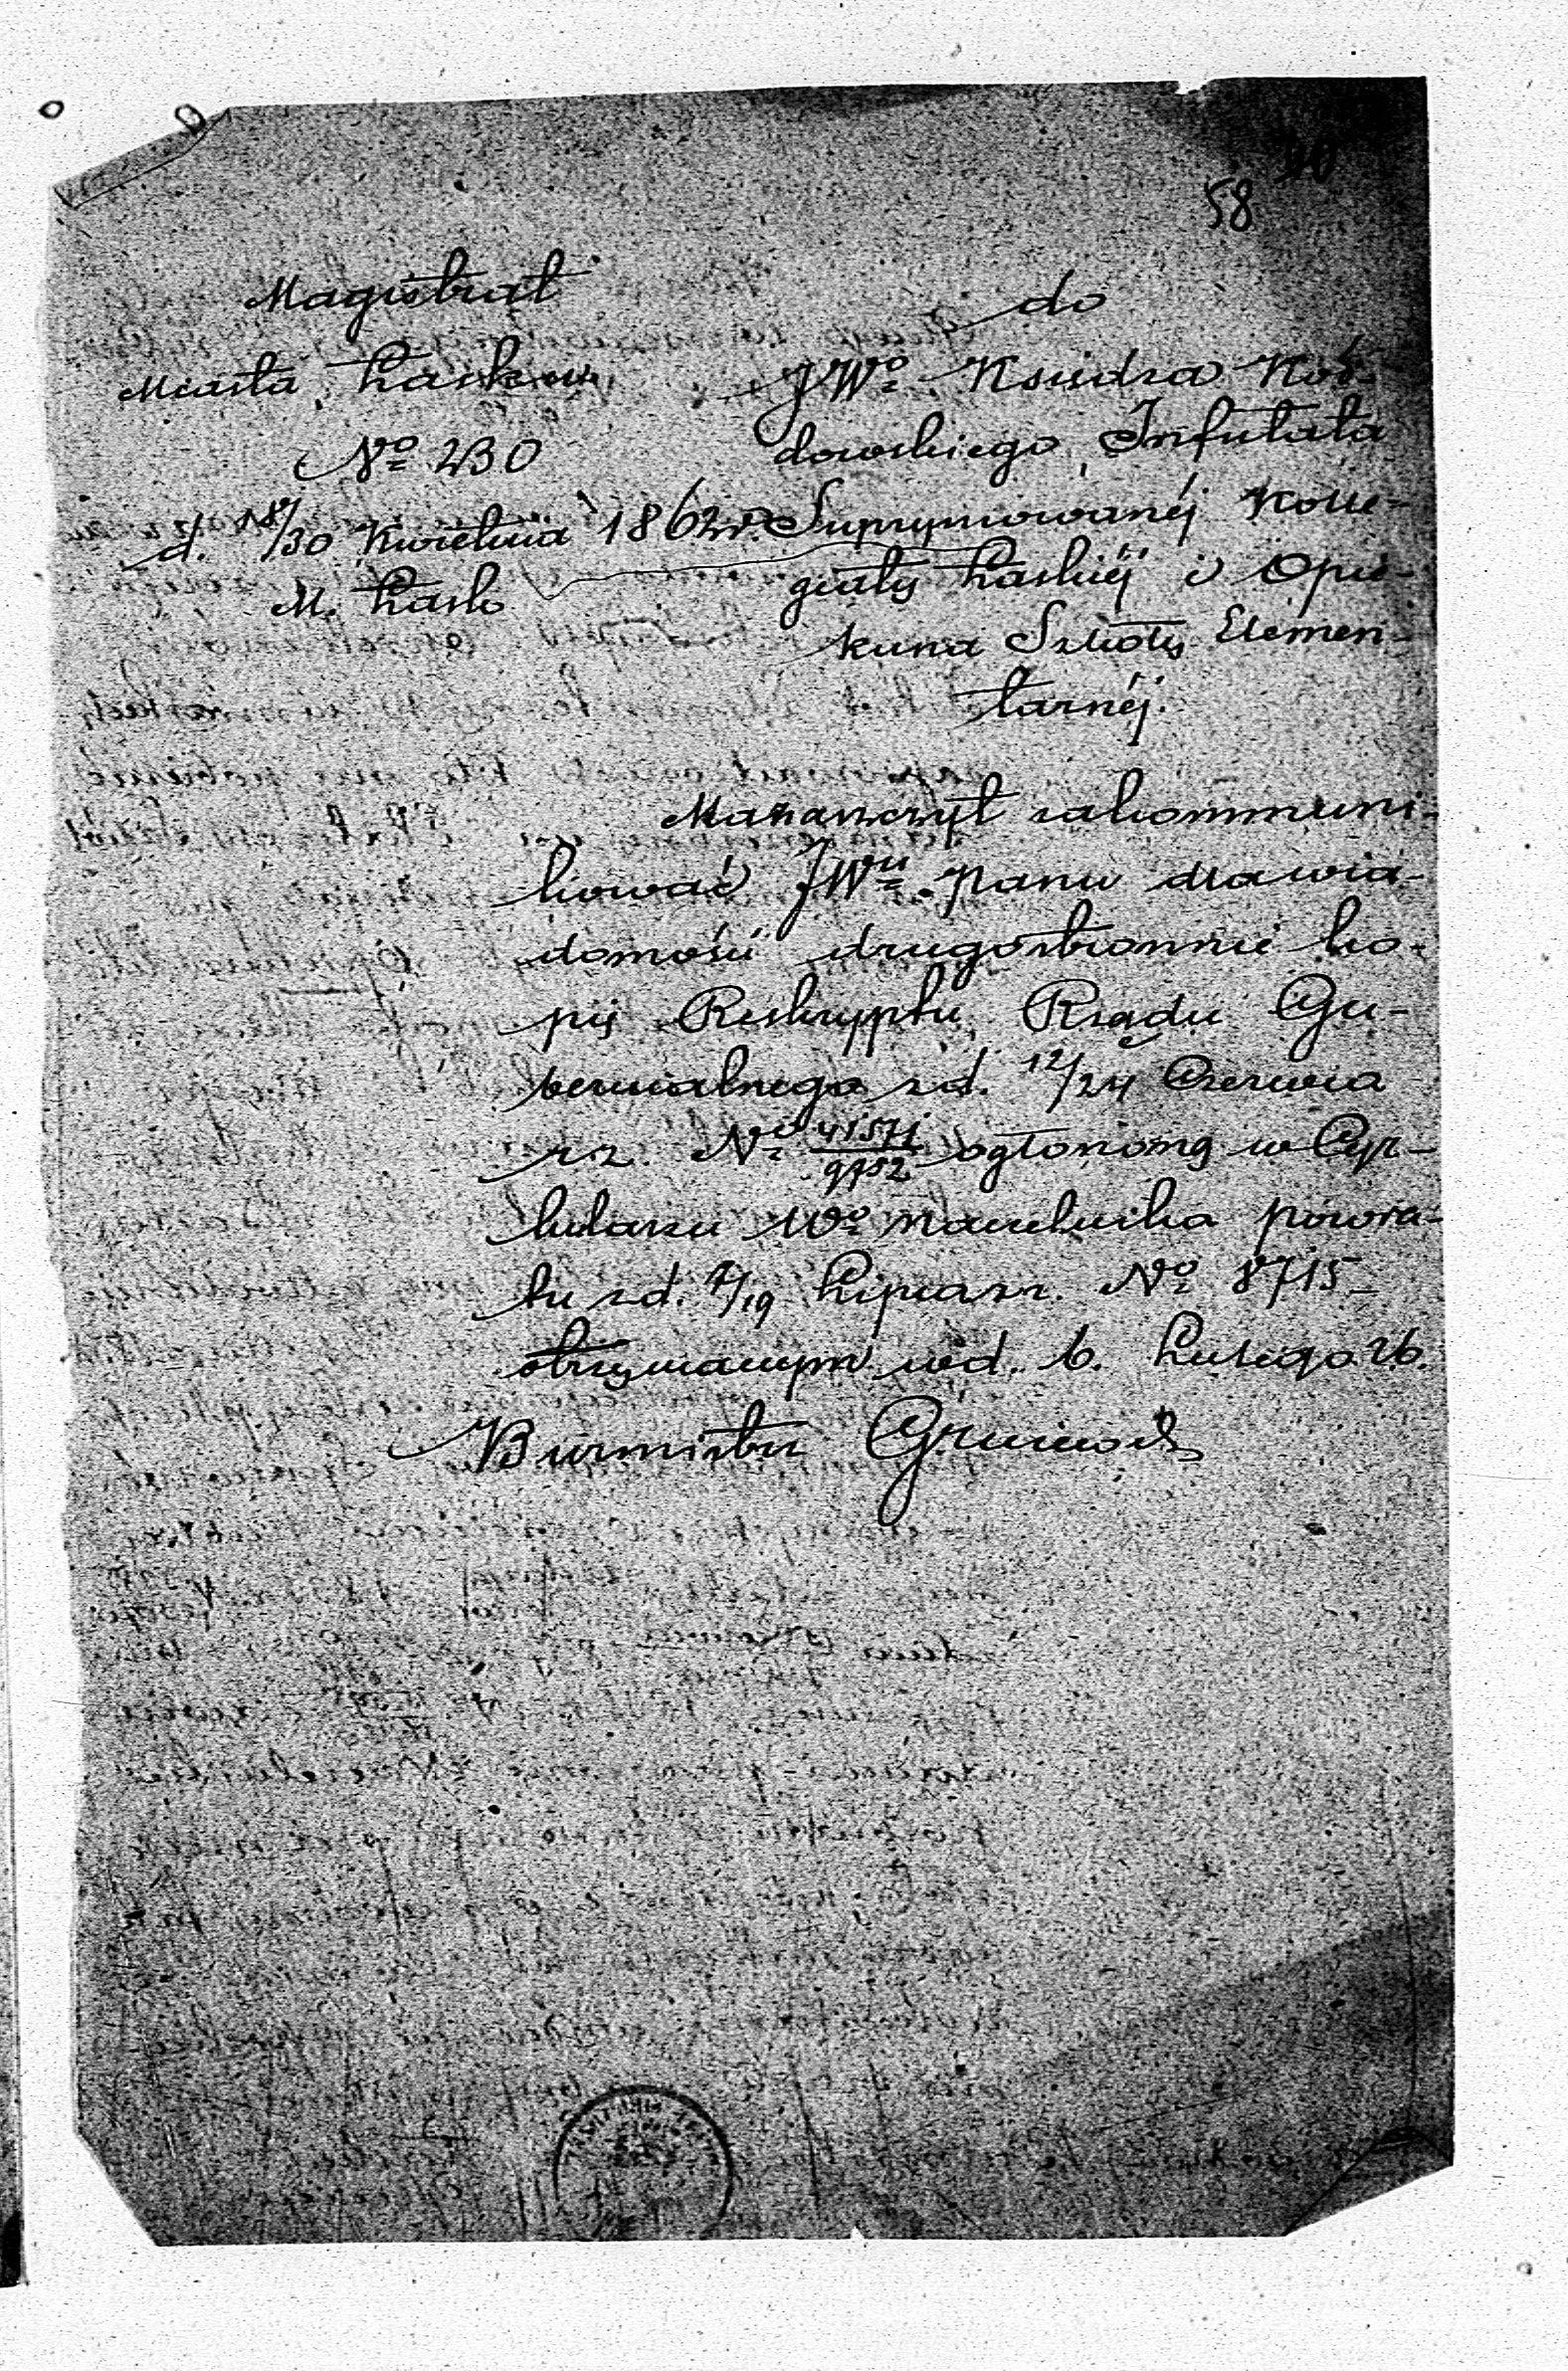 58
Magistrat
Miasta Łasku
№ 230
d. 18/30 Kwietnia 1862 r.
M. Łask
do
JWo. Księdza Kob-
dowskiego Infułata
Suprymowanéj Kolle-
giaty Łaskiéj i Opie-
kuna Szkoły Elemen-
tarnéj.
Ma zaszczyt zakommuni-
kować JWu. Panu dla wia-
domości drugostronnie ko-
pię Reskryptu Rządu Gu-
bernialnego z d. 12/24 Czerwca
r z. № 41571/9752 ogłoszoną w Cyr-
kularzu Wo Naczelnika Powia-
tu z d. 7/19 Lipca z r. № 8715
otrzymanym w d. 6. Lutego r b.
Burmistrz